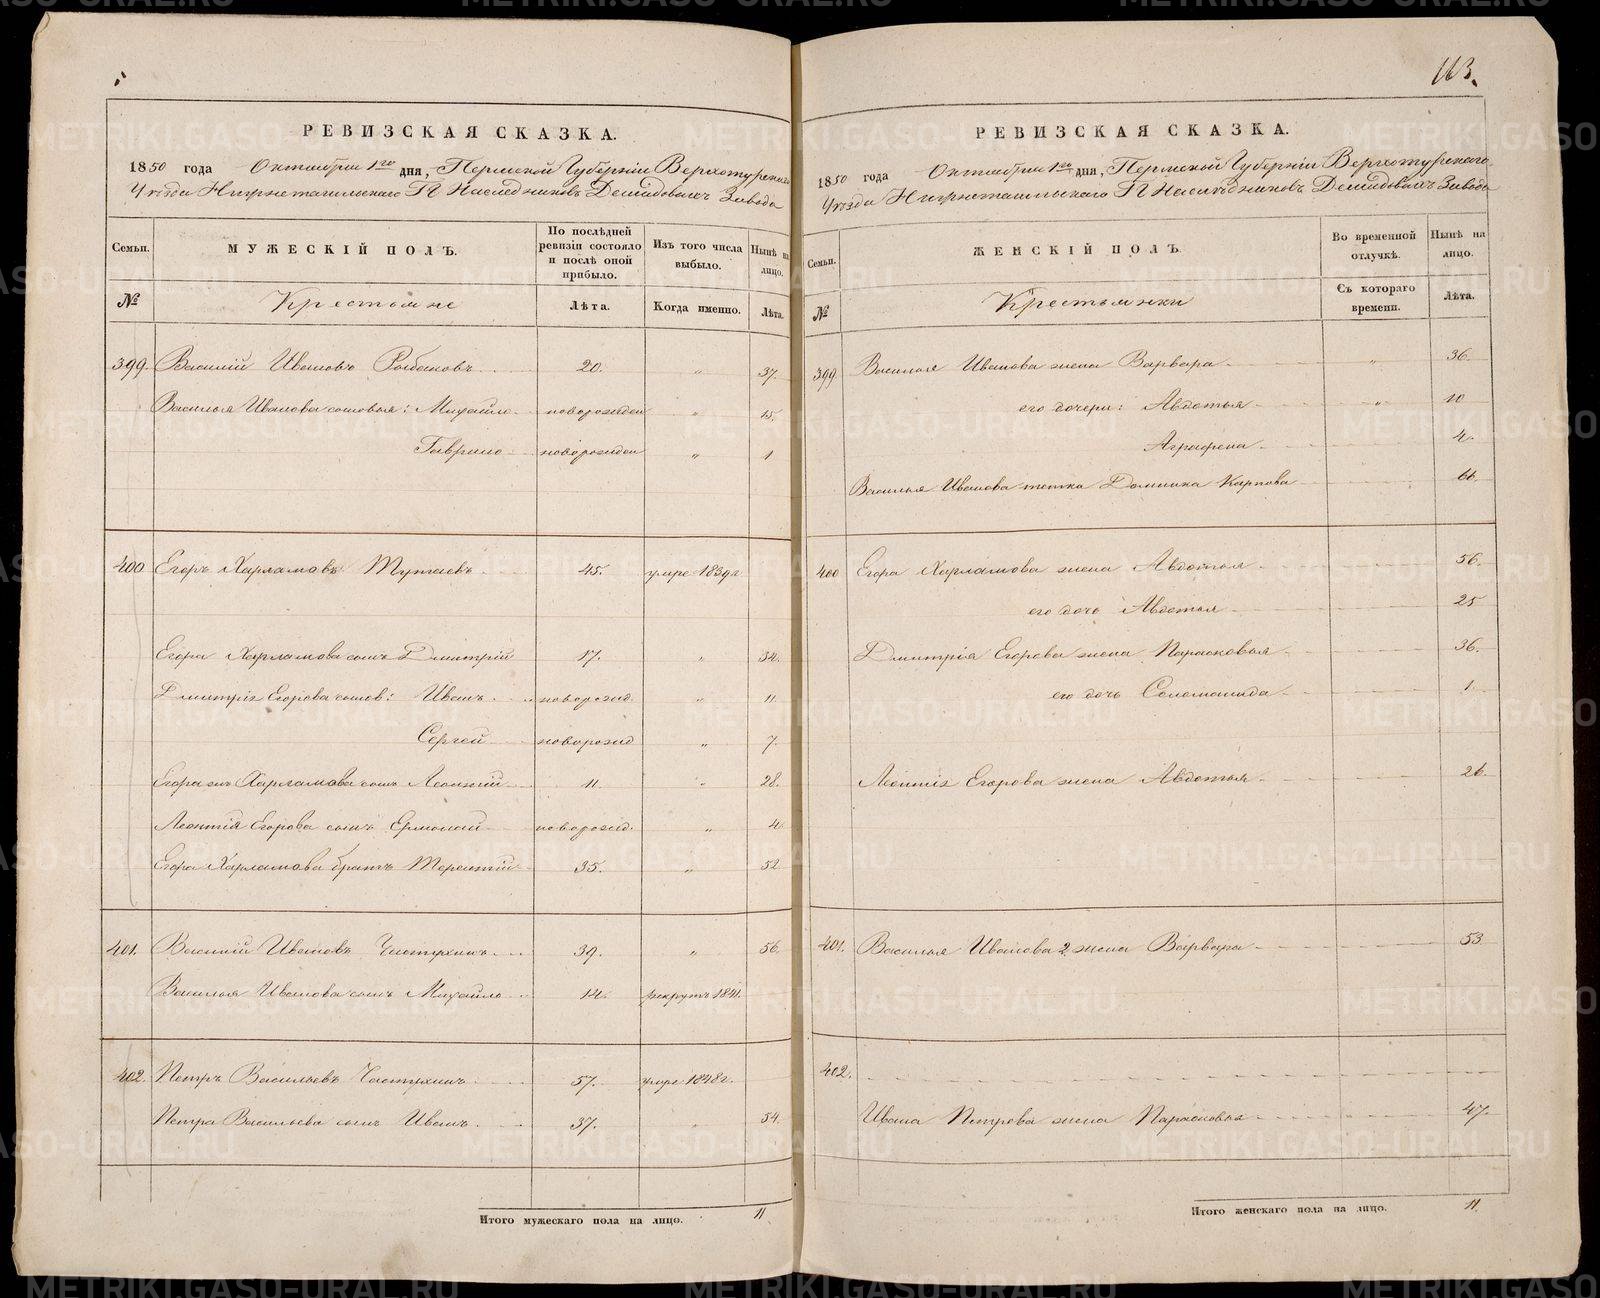 113.
РЕВИЗСКАЯ СКАЗКА.
1850 года Октября 1го дня, Пермской Губерніи Верхотурскаго
Уезда Нижнетагильскаго Гг Наследниковъ Демидовыхъ Завода
Семьи. МУЖЕСКІЙ ПОЛЪ. По послѣдней ревизіи состояло и послѣ оной прибыло. Изъ того числа выбыло. Нынѣ на лицо.
№ Крестьяне Лѣта. Когда именно. Лѣта.
399 Василій Ивановъ Рыбаковъ 20. " 37.
Василья Иванова сыновья: Михайло новорожден " 15.
Гаврило новорожден " 1
400 Егоръ Харламовъ 45. умре 1839г
Егора Харламова сынъ Дмитрій 17. " 34.
Дмитрія Егорова сынов: Иванъ новорожд. " 11.
Сергей новорожд " 7.
Егора Харламова сынъ Леонтій 11 " 28.
Леонтія Егорова сынъ Ермолай новорожд. " 4
Егора Харламова братъ Терентій 35. " 52
401. Василій Ивановъ Частухинъ 39. " 56.
Василья Иванова сынъ Михайло 14. рекрутъ 1841.
402. Петръ Васильевъ Частухинъ 57. умре 1848г.
Петра Васильева сынъ Иванъ 37. " 54.
Итого мужескаго пола на лицо. 11
РЕВИЗСКАЯ СКАЗКА.
1850 года Октября 1го дня, Пермской Губерніи Верхотурскаго
Уезда Нижнетагильскаго Гг Наследниковъ Демидовыхъ Завода
Семьи. ЖЕНСКІЙ ПОЛЪ. Во временной отлучкѣ. Нынѣ на лицо.
№ Крестьянки Съ котораго времени. Лѣта.
399 Василья Иванова жена Варвара " 36.
его дочери: Авдотья " 10
Аграфена 4.
Василья Иванова тетка Домника Карпова 66.
400 Егора Харламова жена Авдотья 56.
его дочь Авдотья 25
Дмитрія Егорова жена Парасковья 36.
его дочь Соломонида 1.
Леонтія Егорова жена Авдотья 26.
401. Василья Иванова 2 жена Варвара 53
402.
Ивана Петрова жена Парасковья 47.
Итого женскаго пола на лицо. 11.
METRIKI.GASO-URAL.RU